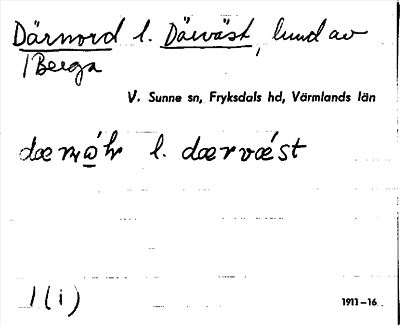 Därnord l. Därväst, lund av
1 Berga
V. Sunne sn, Fryksdals hd, Värmlands län
l. dærvǽst
1 (i)
1911-16